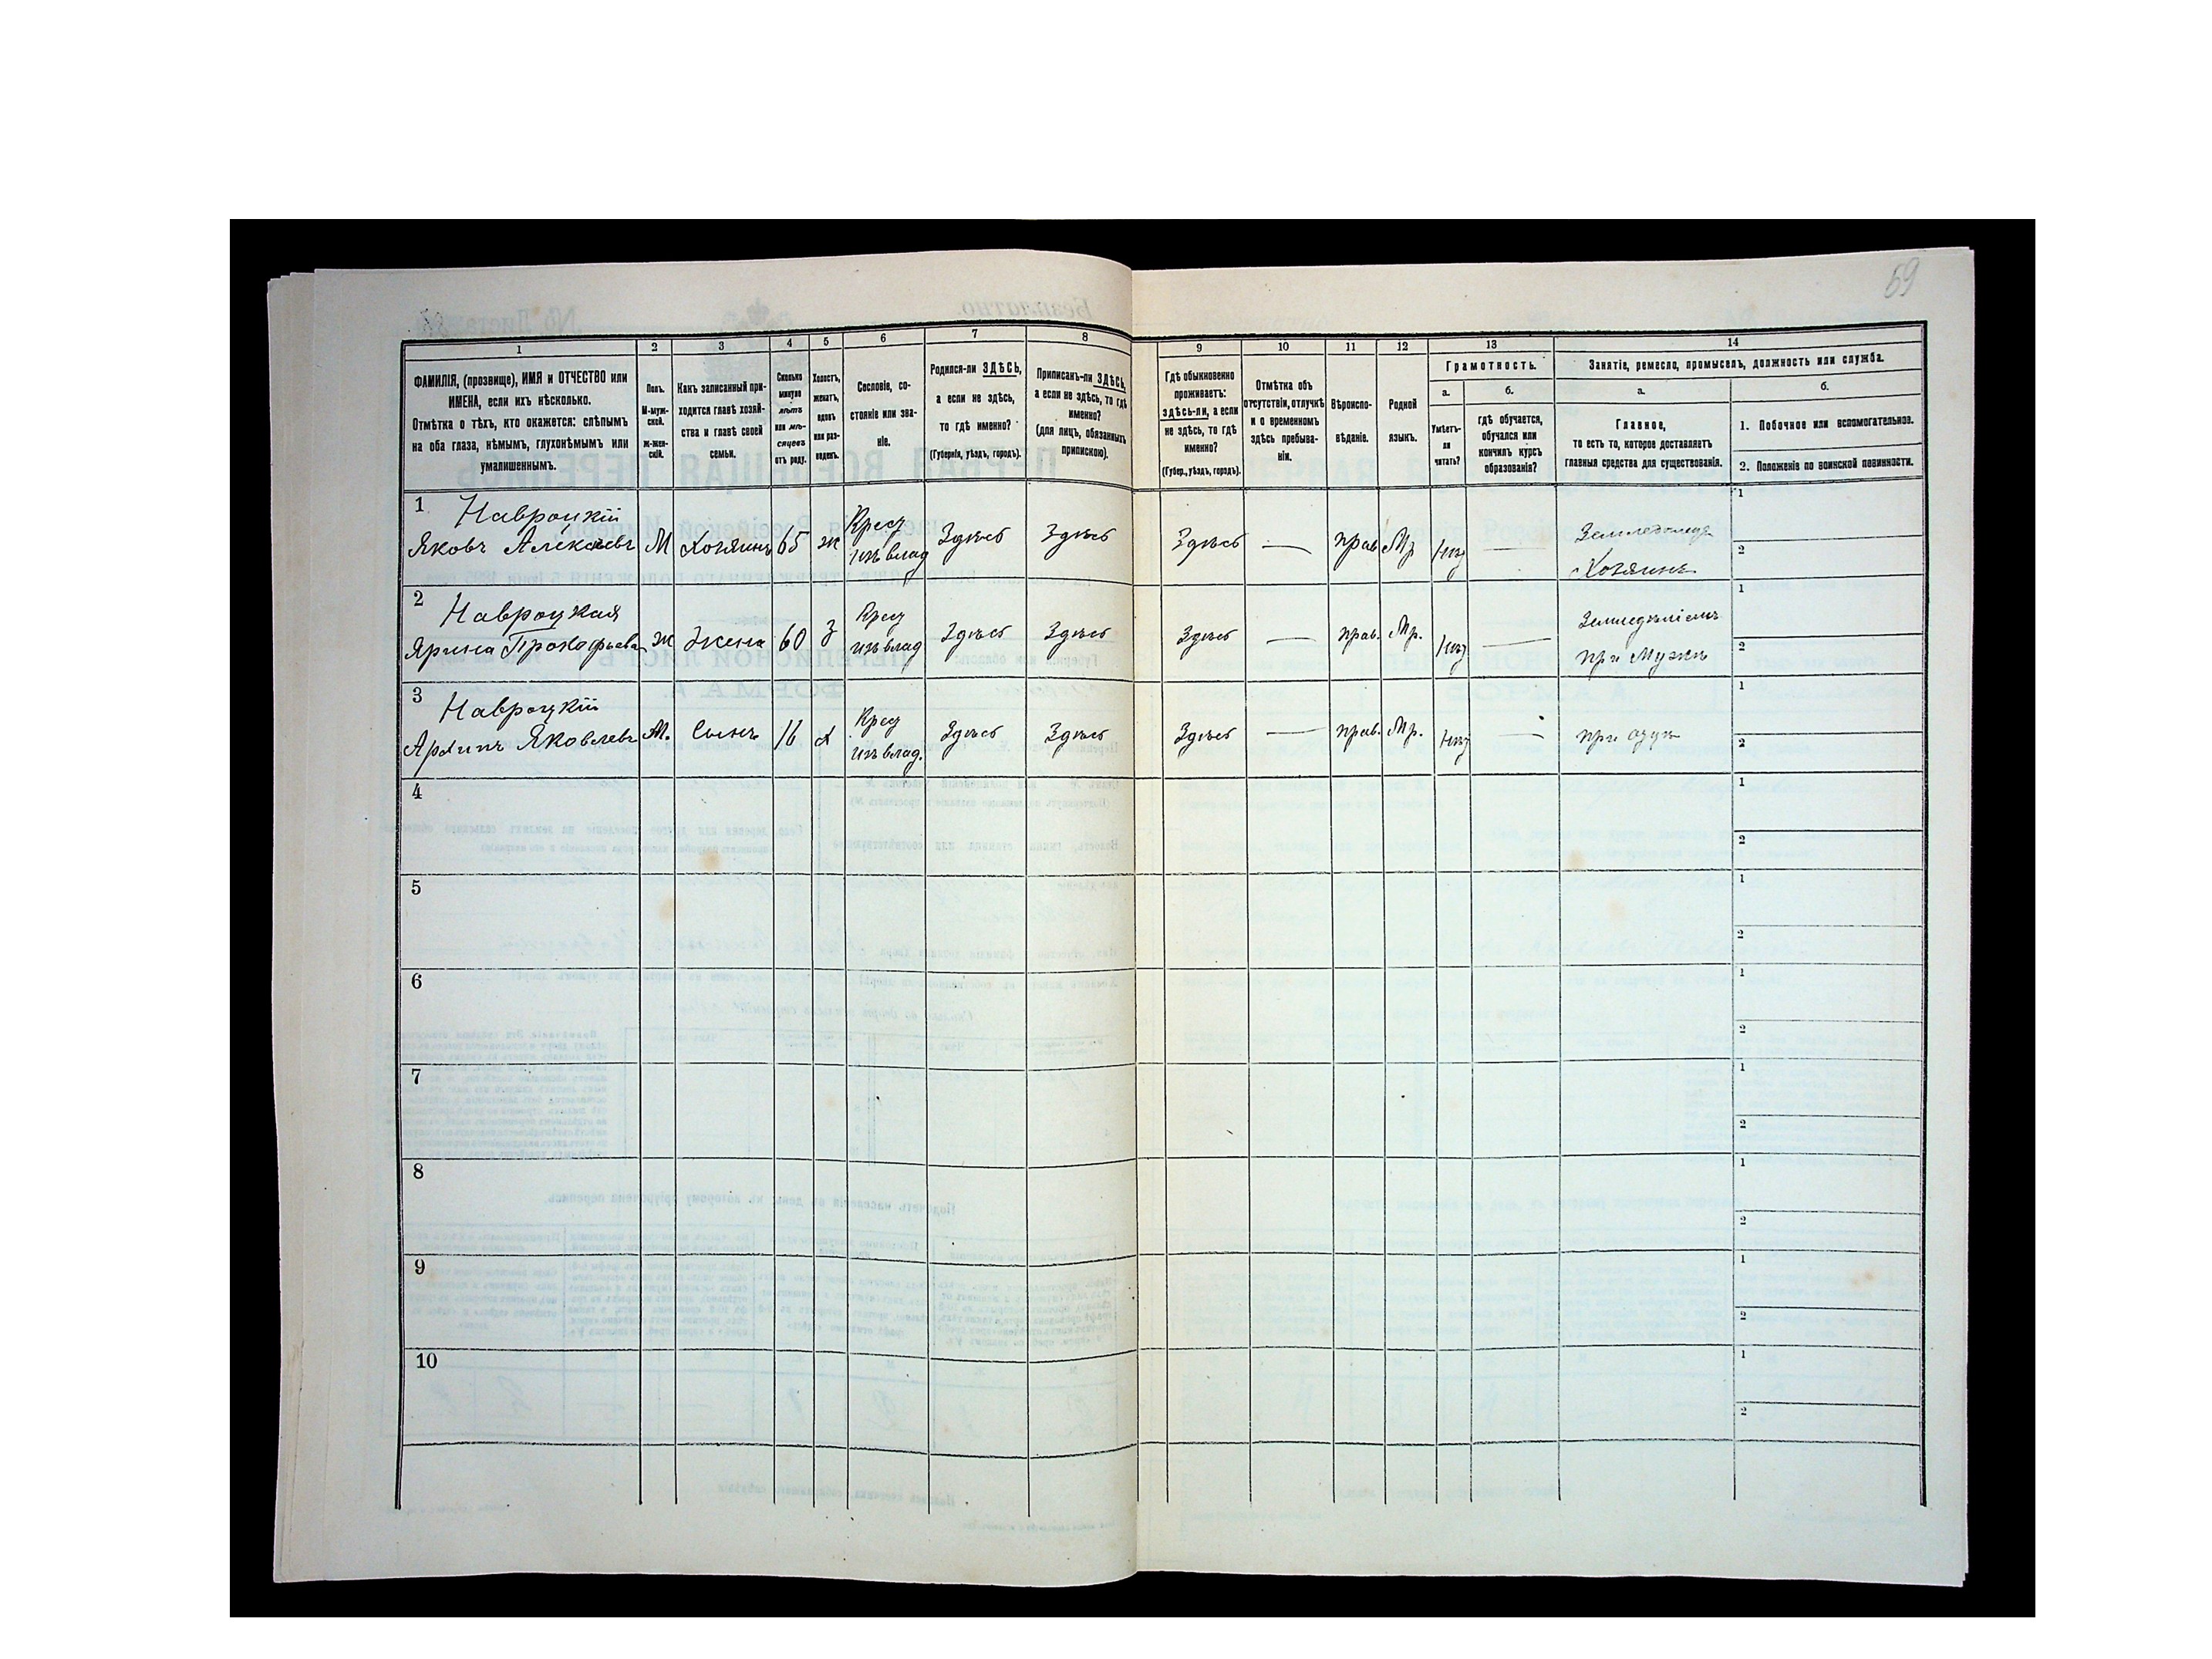 59
1
2
3
4
5
6
7
8
9
10
11
12
13
14
ФАМИЛІЯ, (прозвище), ИМЯ и ОТЧЕСТВО или
ИМЕНА, если ихъ нѣсколько.
Отмѣтка о тѣхъ, кто окажется: слѣпымъ
на оба глаза, нѣмымъ, глухонѣмымъ или
умалишеннымъ.
Полъ.
М-муж-
ской.
Ж-жен-
скій.
Какъ записанный при-
ходится главѣ хозяй-
ства и главѣ своей
семьи.
Сколько
минуло
лѣтъ
или мѣ-
сяцевъ
отъ роду.
Холостъ,
женатъ,
вдовъ
или раз-
веденъ.
Сословіе, со-
стояніе или зва-
ніе.
Родился-ли ЗДѢСЬ,
а если не здѣсь,
то гдѣ именно?
(Губернія, уѣздъ, городъ).
Приписанъ-ли ЗДѢСЬ,
а если не здѣсь, то гдѣ
именно?
(для лицъ, обязанныхъ
припискою).
Гдѣ обыкновенно
проживаетъ:
ЗДѢСЬ-ЛИ, а если
не здѣсь, то гдѣ
именно?
(Губер., уѣздъ, городъ).
Отмѣтка объ
отсутствіи, отлучкѣ
и о временномъ
здѣсь пребыва-
ніи.
Вѣроиспо-
вѣданіе.
Родной
языкъ.
Грамотность.
а.
Умѣетъ-
ли
читать?
б.
гдѣ обучается,
обучался или
кончилъ курсъ
образованія?
Занятіе, ремесло, промыселъ, должность или служба.
а.
Главное,
то есть то, которое доставляетъ
главныя средства для существованія.
б.
1. Побочное или вспомогательное.
2. Положеніе по воинской повинности.
1
Навроцкій
Яковъ Алексѣевъ
М
Хозяинъ
65
ж
Крест
изъ влад
Здѣсь
Здѣсь
Здѣсь
—
прав
Мр
нѣт
—
Хозяинъ
1
2
2
Навроцкая
Ярина Прокофьева
Ж
Жена
60
З
Крест
изъ влад
Здѣсь
Здѣсь
Здѣсь
—
прав.
Мр.
нѣт
—
Земледѣліемъ
при мужѣ
1
2
3
Навроцкій
Архипъ Яковлевъ
М.
Сынъ
16
х
Крест
изъ влад.
Здѣсь
Здѣсь
Здѣсь
—
прав.
Мр.
нѣт
—
при отцѣ
1
2
4
1
2
5
1
2
6
1
2
7
1
2
8
1
2
9
1
2
10
1
2